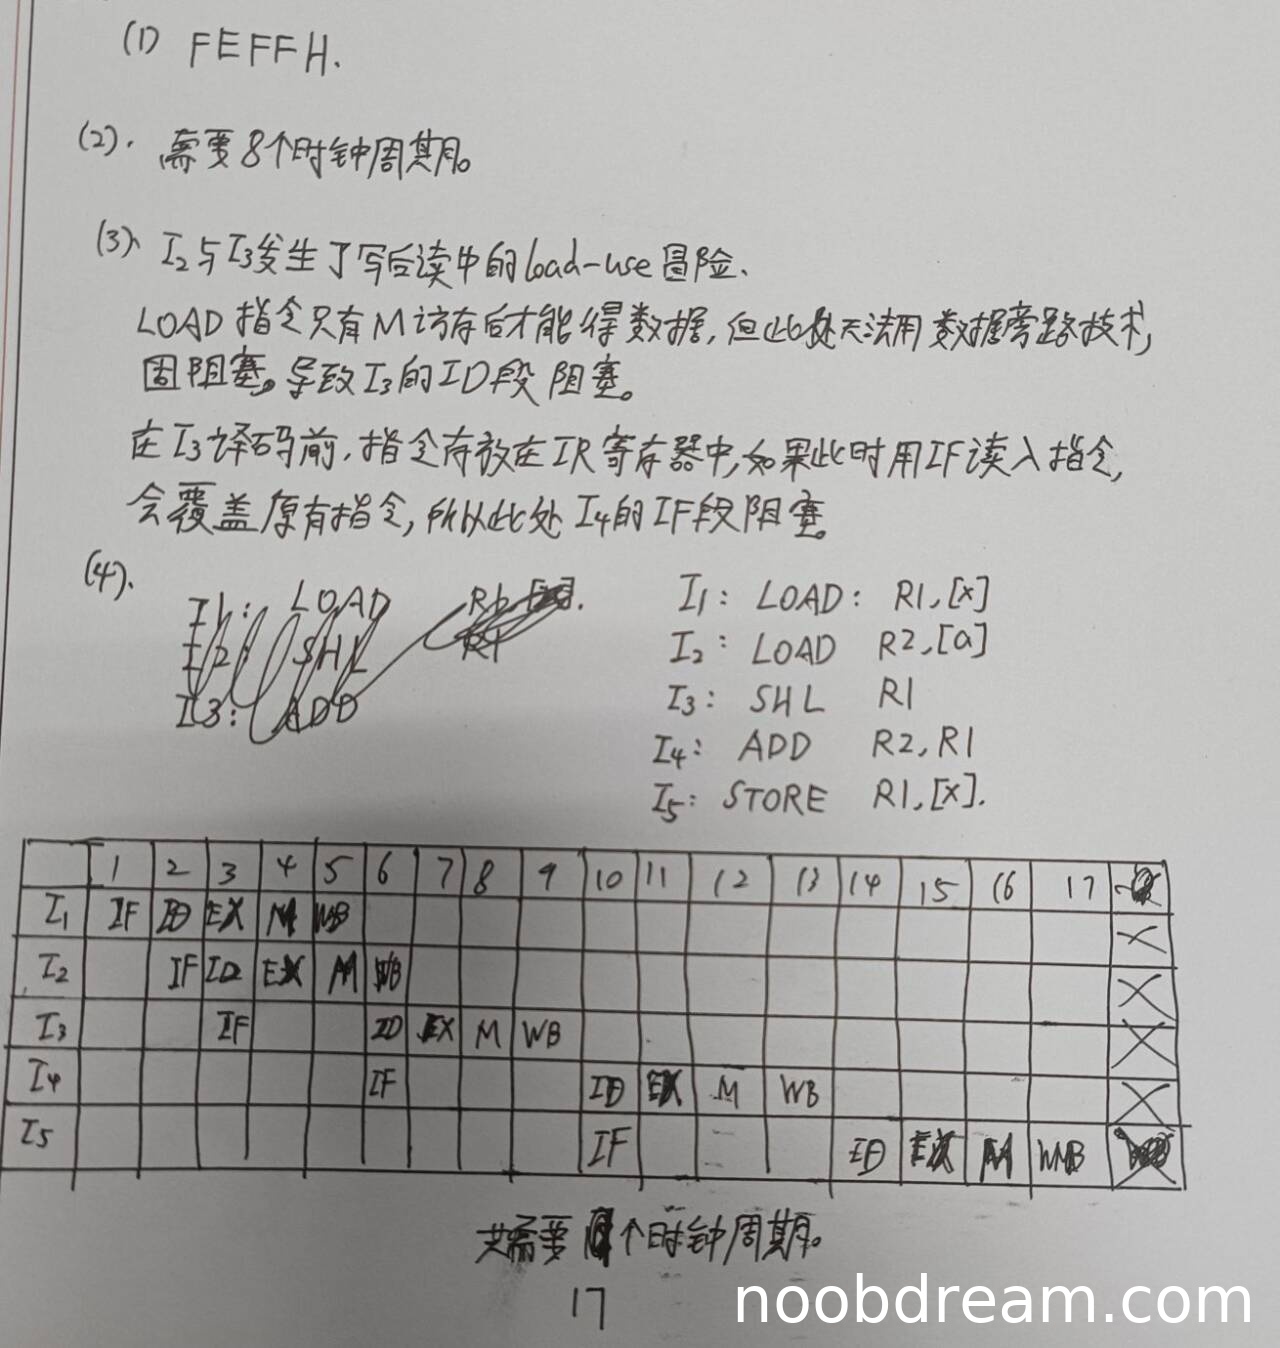 (1) FEFFH.
(2). 需要8个时钟周期。
(3) I2与I3发生了写后读中的load-use冒险.
LOAD指令只有M访存后才能得数据,但此处无法用数据旁路技术,
固阻塞。导致I3的ID段阻塞。
在I3译码前.指令存放在IR寄存器中,如果此时用IF读入指令,
会覆盖原有指令,所以此处I4的IF段阻塞。
(4).
I1: LOAD
I2: SHL R1
I3: ADD
I1: LOAD: R1,[x]
I2: LOAD R2,[a]
I3: SHL R1
I4: ADD R2,R1
I5: STORE R1,[x].
1 2 3 4 5 6 7 8 9 10 11 12 13 14 15 16 17
I1 IF ID EX M WB
I2 IF ID EX M WB
I3 IF ID EX M WB
I4 IF ID EX M WB
I5 IF ID EX M WB
共需要 个时钟周期。
17
noobdream.com